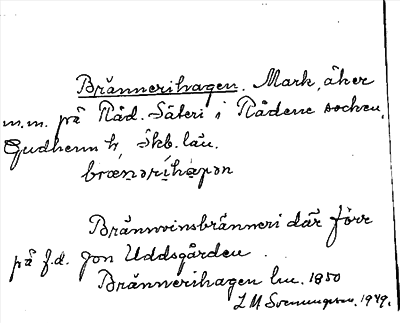 Brännerihagen. Mark, åker
m.m. på Råd. Säteri i Rådene socken,
Gudhems h, Skb. län.
brænərihaɡən
Brännvinsbränneri där förr
på f.d. Jon Uddsgården.
Brännerihagen lm. 1850
L M Svenungsson. 1949.